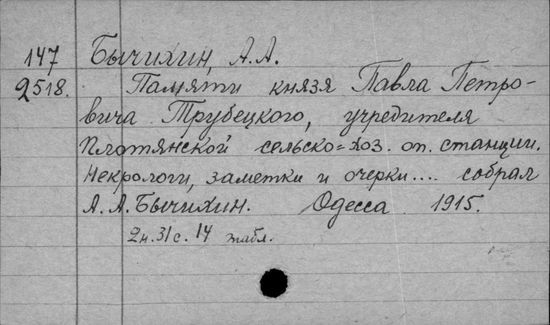 147 Бычихин, А.А.
2518. Памяти князя Павла Петро-
вича Трубецкого, учредителя
Плотянской сельско=хоз. оп. станции.
Некрологи, заметки и очерки.... собрал
А. А. Бычихин. Одесса 1915.
2н. 31 с. 14 табл.